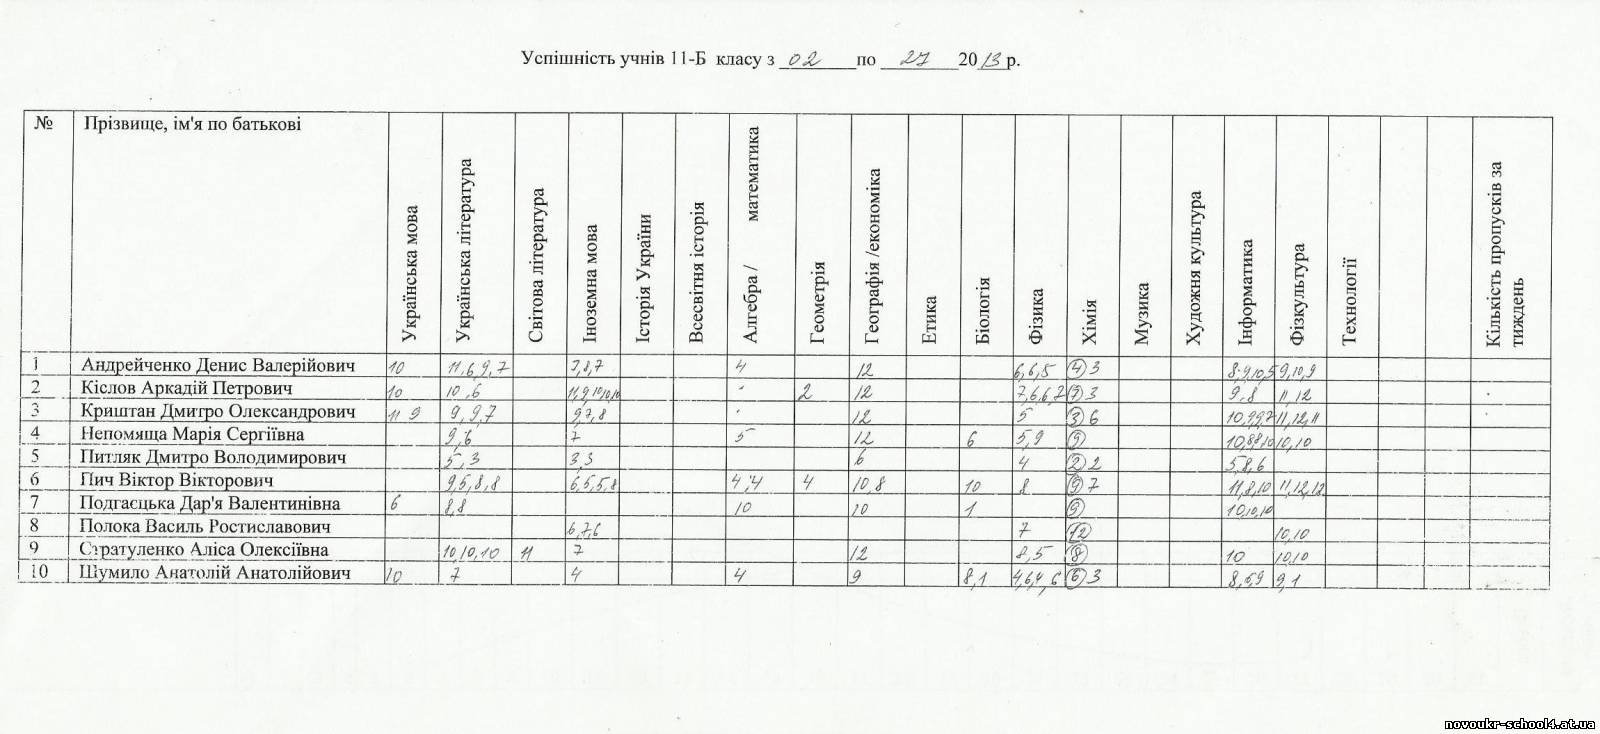 Успішність учнів 11-Б класу з 02 по 27 2013 р.
№ Прізвище, ім'я по батькові Українська мова Українська література Світова література Іноземна мова Історія України Всесвітня історія Алгебра / математика Геометрія Географія /економіка Етика Біологія Фізика Хімія Музика Художня культура Інформатика Фізкультура Технології Кількість пропусків за тиждень
1 Андрейченко Денис Валерійович 10 11,6,9,7 9,8,7 4 12 6,6,5 4 3 8,9,10,5 9,10,9
2 Кіслов Аркадій Петрович 10 10,6 11,9,10,10,10 2 12 7,6,6,7 7 3 9,8 11,12
3 Криштан Дмитро Олександрович 11 9 9,9,7 9,7,8 12 5 3 6 10,9,9,7 11,12,11
4 Непомяща Марія Сергіївна 9,6 7 5 12 6 5,9 9 10,8,8,10 10,10
5 Питляк Дмитро Володимирович 5,3 3,3 6 4 2 2 5,8,6
6 Пич Віктор Вікторович 9,5,8,8 6,5,5,8 4,4 4 10,8 10 8 9 7 11,8,10 11,12,12
7 Подгаєцька Дар'я Валентинівна 6 8,8 10 10 1 9 10,10,10
8 Полока Василь Ростиславович 6,7,6 7 12 10,10
9 Стратуленко Аліса Олексіївна 10,10,10 11 7 12 8,5 8 10 10,10
10 Шумило Анатолій Анатолійович 10 7 4 4 9 8,1 4,6,4,6 6 3 8,5,9 9,1
novoukr-school4.at.ua